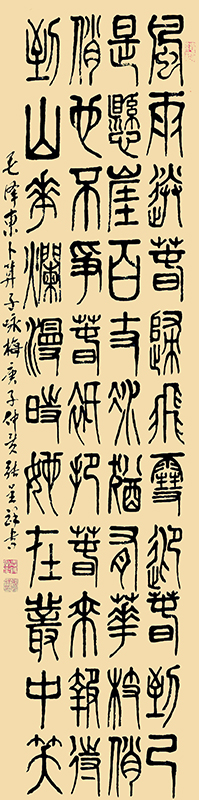 風雨送春歸飛雪迎春到已
是懸崖百丈冰猶有華枝俏
俏也不爭春祇把春來報待
到山華爛漫時她在叢中笑
毛泽東卜算子詠梅庚子仲夏張書